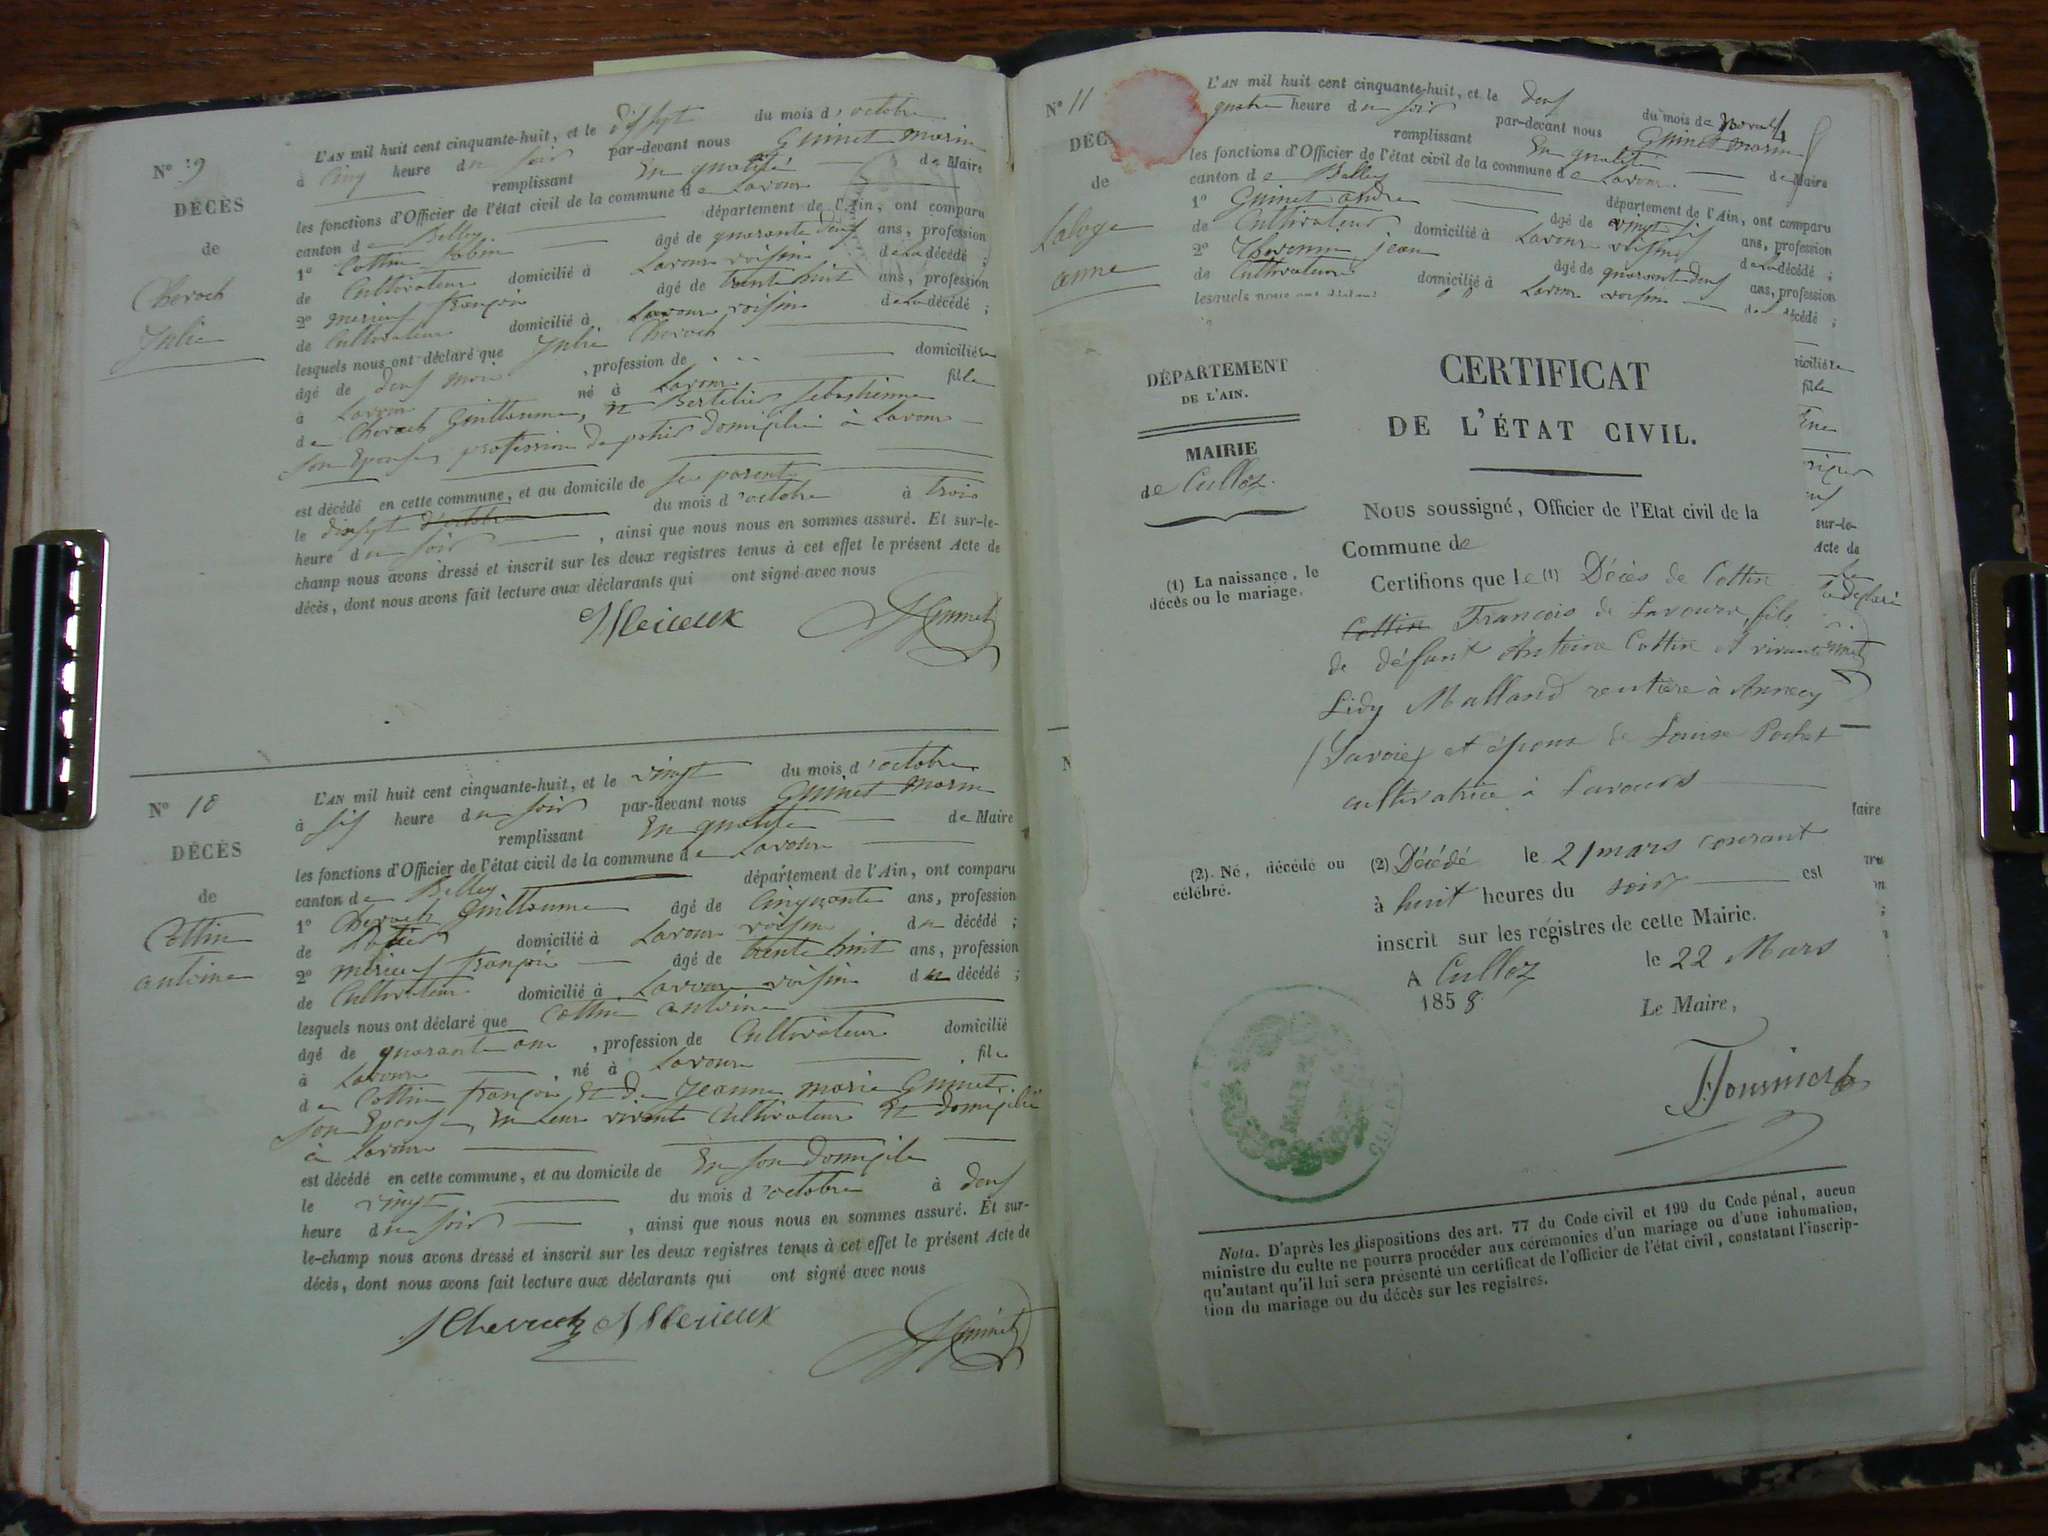 N° 9
DÉCÈS
de
Cheroch
Julie
L'AN mil huit cent cinquante-huit, et le dissept du mois d'octobre
à Cinq heure du soir par-devant nous Guinet marin
remplissant En qualité de Maire
les fonctions d'Officier de l'état civil de la commune de Lavour
canton de Belley département de l'Ain, ont comparu
1° Cottin âgé de quarante deux ans, profession
de Cultivateur domicilié à Lavour voisin de La décédé ;
2° merieux françois âgé de trente huit ans, profession
de Cultivateur domicilié à Lavour voisin de La décédé ;
lesquels nous ont déclaré que Julie Cheroch
âgé de deux mois , profession de domiciliée
à Lavour né à Lavour fille
de Cheroch Guillaume, et Bertelier sebastienne
son Epouse, profession de potier domicilié à Lavour
est décédé en cette commune, et au domicile de se parents
le dissept d'octobre du mois d'octobre à trois
heure du soir , ainsi que nous nous en sommes assuré. Et sur-le-
champ nous avons dressé et inscrit sur les deux registres tenus à cet effet le présent Acte de
décès, dont nous avons fait lecture aux déclarants qui ont signé avec nous
Merieux Guinet
N° 10
DÉCÈS
de
Cottin
antoine
L'AN mil huit cent cinquante-huit, et le vingt du mois d'octobre
à six heure du soir par-devant nous Guinet marin
remplissant En qualité de Maire
les fonctions d'Officier de l'état civil de la commune de Lavour
canton de Belley département de l'Ain, ont comparu
1° Cheroch Guillaume âgé de Cinquante ans, profession
de Potier domicilié à Lavour voisin du décédé ;
2° merieux françois âgé de trente huit ans, profession
de Cultivateur domicilié à Lavour voisin du décédé ;
lesquels nous ont déclaré que Cottin antoine
âgé de quarante ans , profession de Cultivateur domicilié
à Lavour né à Lavour , fils
de Cottin françois Et de Jeanne marie Guinet
son Epouse, En leur vivant Cultivateur Et domicilié
à Lavour
est décédé en cette commune, et au domicile de En son domicile
le vingt du mois d'octobre à deux
heure du soir , ainsi que nous nous en sommes assuré. Et sur-
le-champ nous avons dressé et inscrit sur les deux registres tenus à cet effet le présent Acte de
décès, dont nous avons fait lecture aux déclarants qui ont signé avec nous
Cheroch Merieux Guinet
N° 11
DÉC
de
Laloge
anne
L'AN mil huit cent cinquante-huit, et le deux du mois de
quatre heure du soir par-devant nous Guinet marin
remplissant En qualité de Maire
les fonctions d'Officier de l'état civil de la commune de Lavour
canton de Belley département de l'Ain, ont comparu
1° Guinet andre âgé de vingt six ans, profession
de Cultivateur domicilié à Lavour voisin de La décédé ;
2° jean âgé de quarante deux ans, profession
de Cultivateur domicilié à Lavour voisin de décédé ;
lesquels nous ont déclaré
DÉPARTEMENT
DE L'AIN.
MAIRIE
de Culloz.
CERTIFICAT
DE L'ÉTAT CIVIL.
NOUS SOUSSIGNÉ, Officier de l'Etat civil de la
Commune de
(1) La naissance, le
décès ou le mariage.
Certifions que le (1) Décès de Cottin
Cottin François de Lavours, fils
de défunt Antoine Cottin et vivante
Lidy Malland rentière à Annecy
(Savoie) et époux de Louise Pochet
cultivatrice à Lavours
(2). Né, décédé ou
célébré.
(2) Décédé le 21 mars courant
à huit heures du soir est
inscrit sur les régistres de cette Mairie.
A Culloz le 22 Mars
1858
Le Maire,
MAIRIE
Nota. D'après les dispositions des art. 77 du Code civil et 199 du Code pénal, aucun
ministre du culte ne pourra procéder aux cérémonies d'un mariage ou d'une inhumation,
qu'autant qu'il lui sera présenté un certificat de l'officier de l'état civil, constatant l'inscrip-
tion du mariage ou du décès sur les registres.